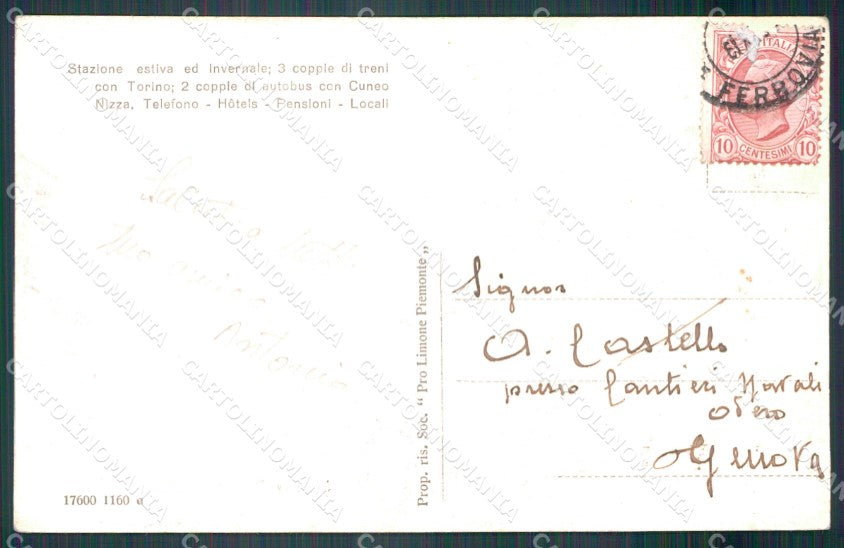 Stazione estiva ed Invernale; 3 coppie di treni
con Torino; 2 coppie di autobus con Cuneo
Nizza. Telefono - Hôtels - Pensioni - Locali
ITALIA
FERROVIA
10 CENTESIMI 10
Antonio
Prop. ris. Soc. “ Pro Limone Piemonte „
Signor
A. Castello
presso Cantieri Navali
Odero
Genova
17600 1160 a
CARTOLINOMANIA